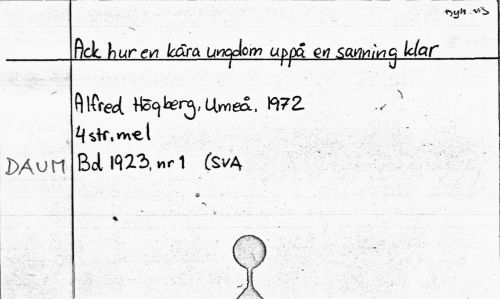 nyh. vis
Ack hur en kära ungdom uppå en sanning klar
Alfred Högberg, Umeå, 1972
4 str, mel
DAUM Bd 1923, nr 1 (SVA